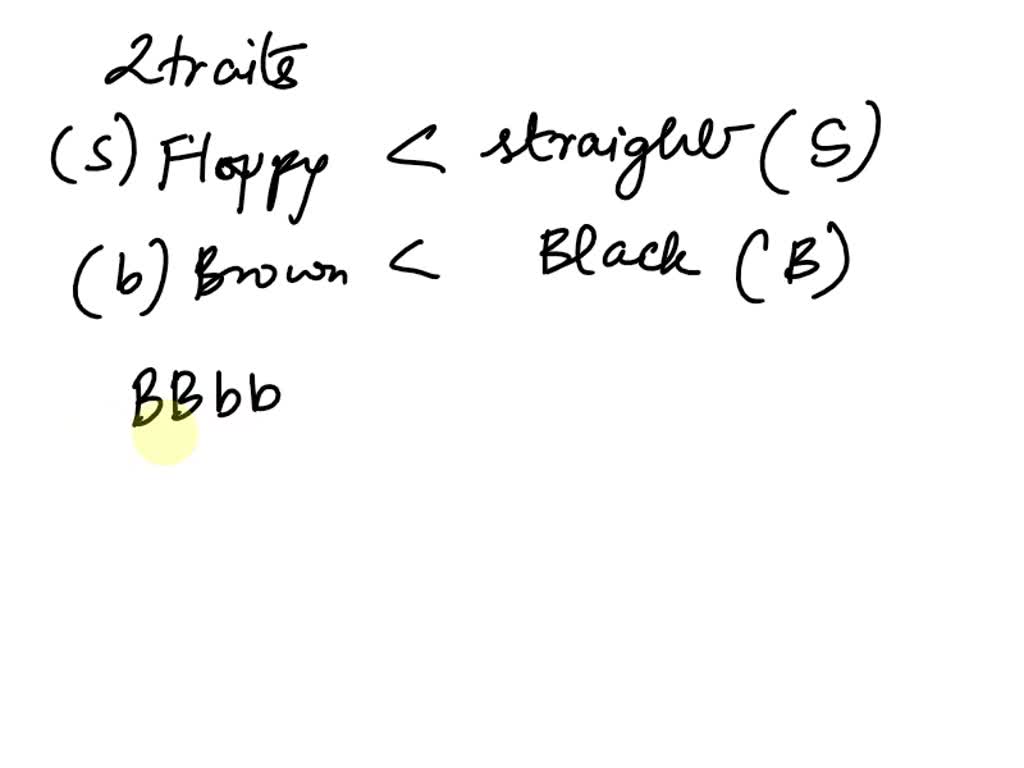 2 traits
(s) Floppy < straight (S)
(b) Brown < Black (B)
BBbb